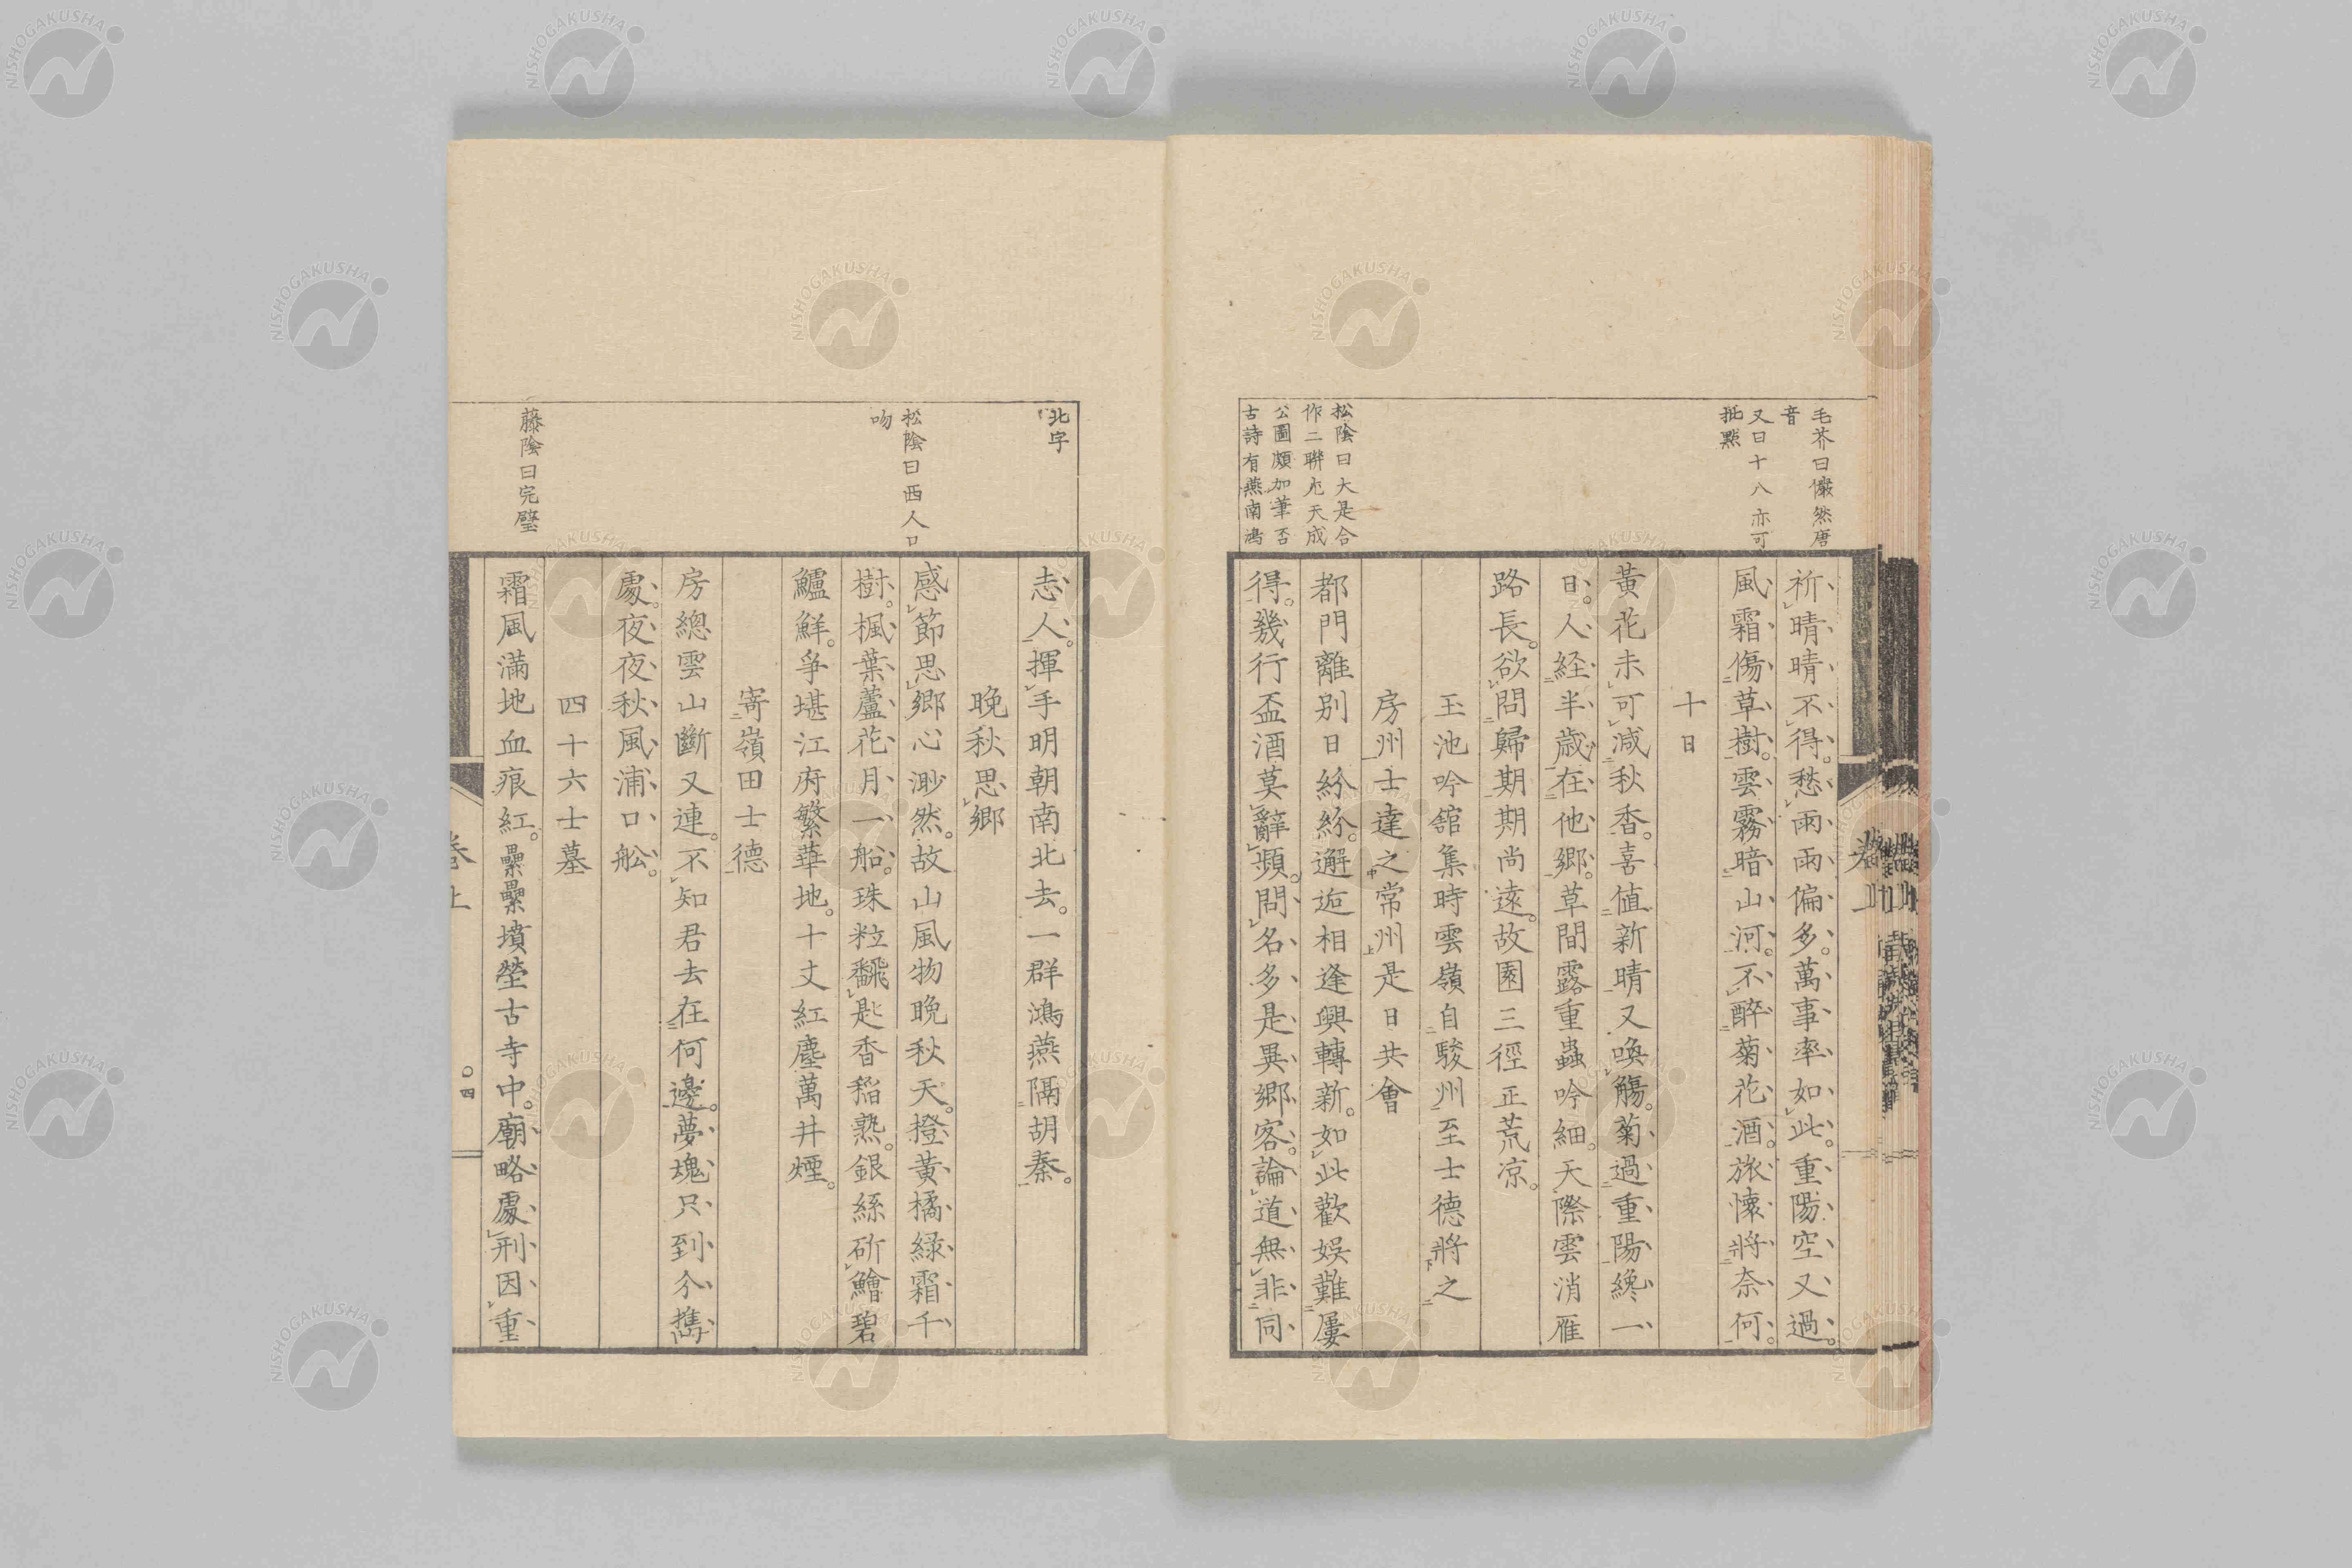 毛芥曰儼然唐
音
又曰十八亦可
批點
祈晴晴不得。愁雨雨偏多。萬事率如此。重陽空又過。
風霜傷草樹。雲霧暗山河。不醉菊花酒。旅懷將奈何。
十日
黃花未可減秋香。喜值新晴又喚觴。菊過重陽纔一
日。人経半歲在他鄉。草間露重蟲吟細。天際雲消雁
路長。欲問歸期期尚遠。故園三徑正荒凉。
玉池吟舘集時雲嶺自駿州至士德將之
房州士達之常州是日共會
松陰曰大是合
作二聯尤天成
公圖頗加筆否
古詩有燕南鴻
都門離別日紛紛。邂逅相逢興轉新。如此歡娛難屢
得。幾行盃酒莫辭頻。問名多是異鄉客。論道無非同
北字
志人。揮手明朝南北去。一群鴻燕隔胡秦。
晚秋思鄉
松陰曰西人口
吻
感節思鄉心渺然。故山風物晚秋天。橙黃橘綠霜千
樹。楓葉蘆花月一船。珠粒飜匙香稻熟。銀絲斫鱠碧
鱸鮮。爭堪江府繁華地。十丈紅塵萬井煙。
寄嶺田士德
房總雲山斷又連。不知君去在何邊。夢魂只到分携
處。夜夜秋風浦口舩。
四十六士墓
藤陰曰完璧
霜風滿地血痕紅。纍纍墳塋古寺中。廟略處刑因重
卷上
〇四
NISHOGAKUSHA